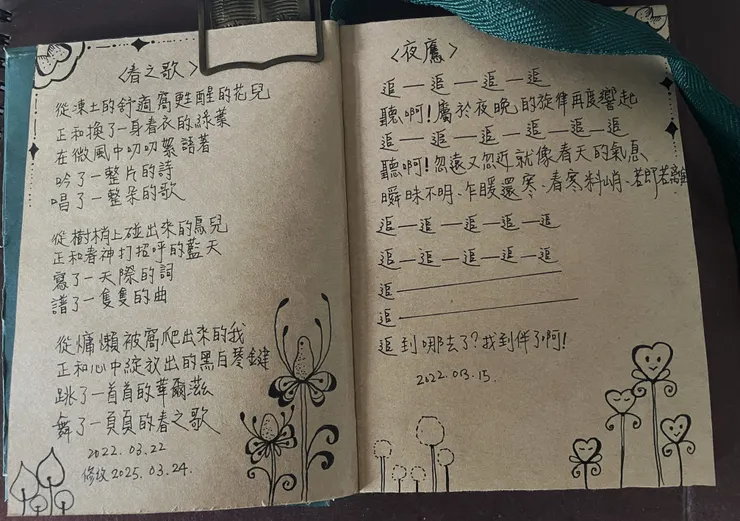 〈春之歌〉
從凍土的舒適窩甦醒的花兒
正和換了一身春衣的綠葉
在微風中叨叨絮語著
吟了一整片的詩
唱了一整朵的歌
從樹梢上碰出來的鳥兒
正和春神打招呼的藍天
寫了一天際的詞
譜了一隻隻的曲
從慵懶被窩爬出來的我
正和心中綻放出的黑白琴鍵
跳了一首首的華爾滋
舞了一頁頁的春之歌
2022.03.22
修改2025.03.24.
〈夜鷹〉
追—追—追—追
聽啊!屬於夜晚的旋律再度響起
追—追—追—追—追—追
聽啊!忽遠又忽近就像春天的氣息
瞬昧不明、乍暖還寒、春寒料峭、若即若離
追—追—追—追—追
追—追—追—追—追
追—
追—
追到哪去了?找到伴了啊!
2022.03.15.